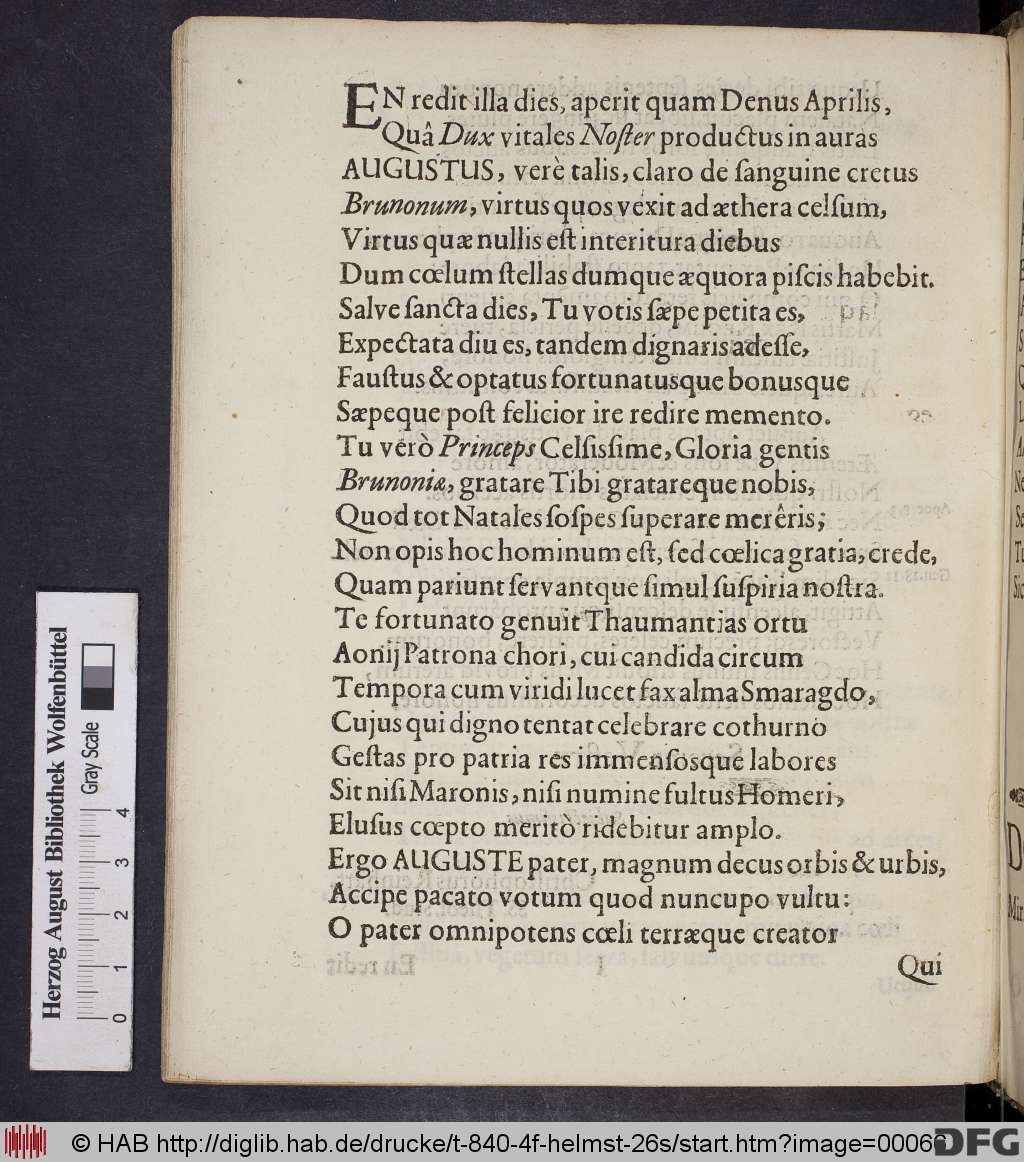 EN redit illa dies, aperit quam Denus Aprilis,
Quâ Dux vitales Noſter productus in auras
AUGUSTUS, verè talis, claro de ſanguine cretus
Brunonum, virtus quos vexit ad æthera celſum,
Virtus quæ nullis eſt interitura diebus
Dum cœlum ſtellas dumque æquora piſcis habebit.
Salve ſancta dies, Tu votis ſæpe petita es,
Expectata diu es, tandem dignaris adeſſe,
Fauſtus & optatus fortunatusque bonusque
Sæpeque poſt felicior ire redire memento.
Tu verò Princeps Celſisſime, Gloria gentis
Brunoniæ, gratare Tibi gratareque nobis,
Quod tot Natales ſoſpes ſuperare merêris;
Non opis hoc hominum eſt, ſed cœlica gratia, crede,
Quam pariunt ſervantque ſimul ſuſpiria noſtra.
Te fortunato genuit Thaumantias ortu
Aonij Patrona chori, cui candida circum
Tempora cum viridi lucet fax alma Smaragdo,
Cujus qui digno tentat celebrare cothurno
Geſtas pro patria res immenſosque labores
Sit niſi Maronis, niſi numine fultus Homeri,
Eluſus cœpto meritò ridebitur amplo.
Ergo AUGUSTE pater, magnum decus orbis & urbis,
Accipe pacato votum quod nuncupo vultu:
O pater omnipotens cœli terræque creator
Qui
Herzog August Bibliothek Wolfenbüttel
Gray Scale
0 1 2 3 4
© HAB http://diglib.hab.de/drucke/t-840-4f-helmst-26s/start.htm?image=00066
DFG